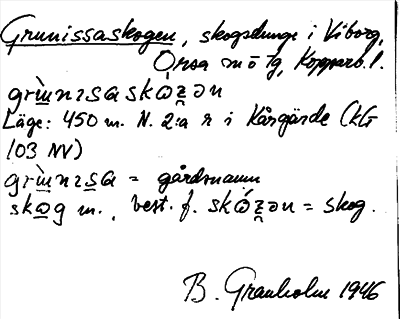 Grunissaskogen, skogsdunge i Viborg,
Orsa sn o tg, Kopparb. l.
grùnɪsaskωʒ̥ən
Läge: 450 m. N. 2:a r i Kårgärde (kG
103 NV)
grùnɪsa = gårdsnamn
skωg m., best. f. skώʒ̥ən = skog.
B. Granholm 1946